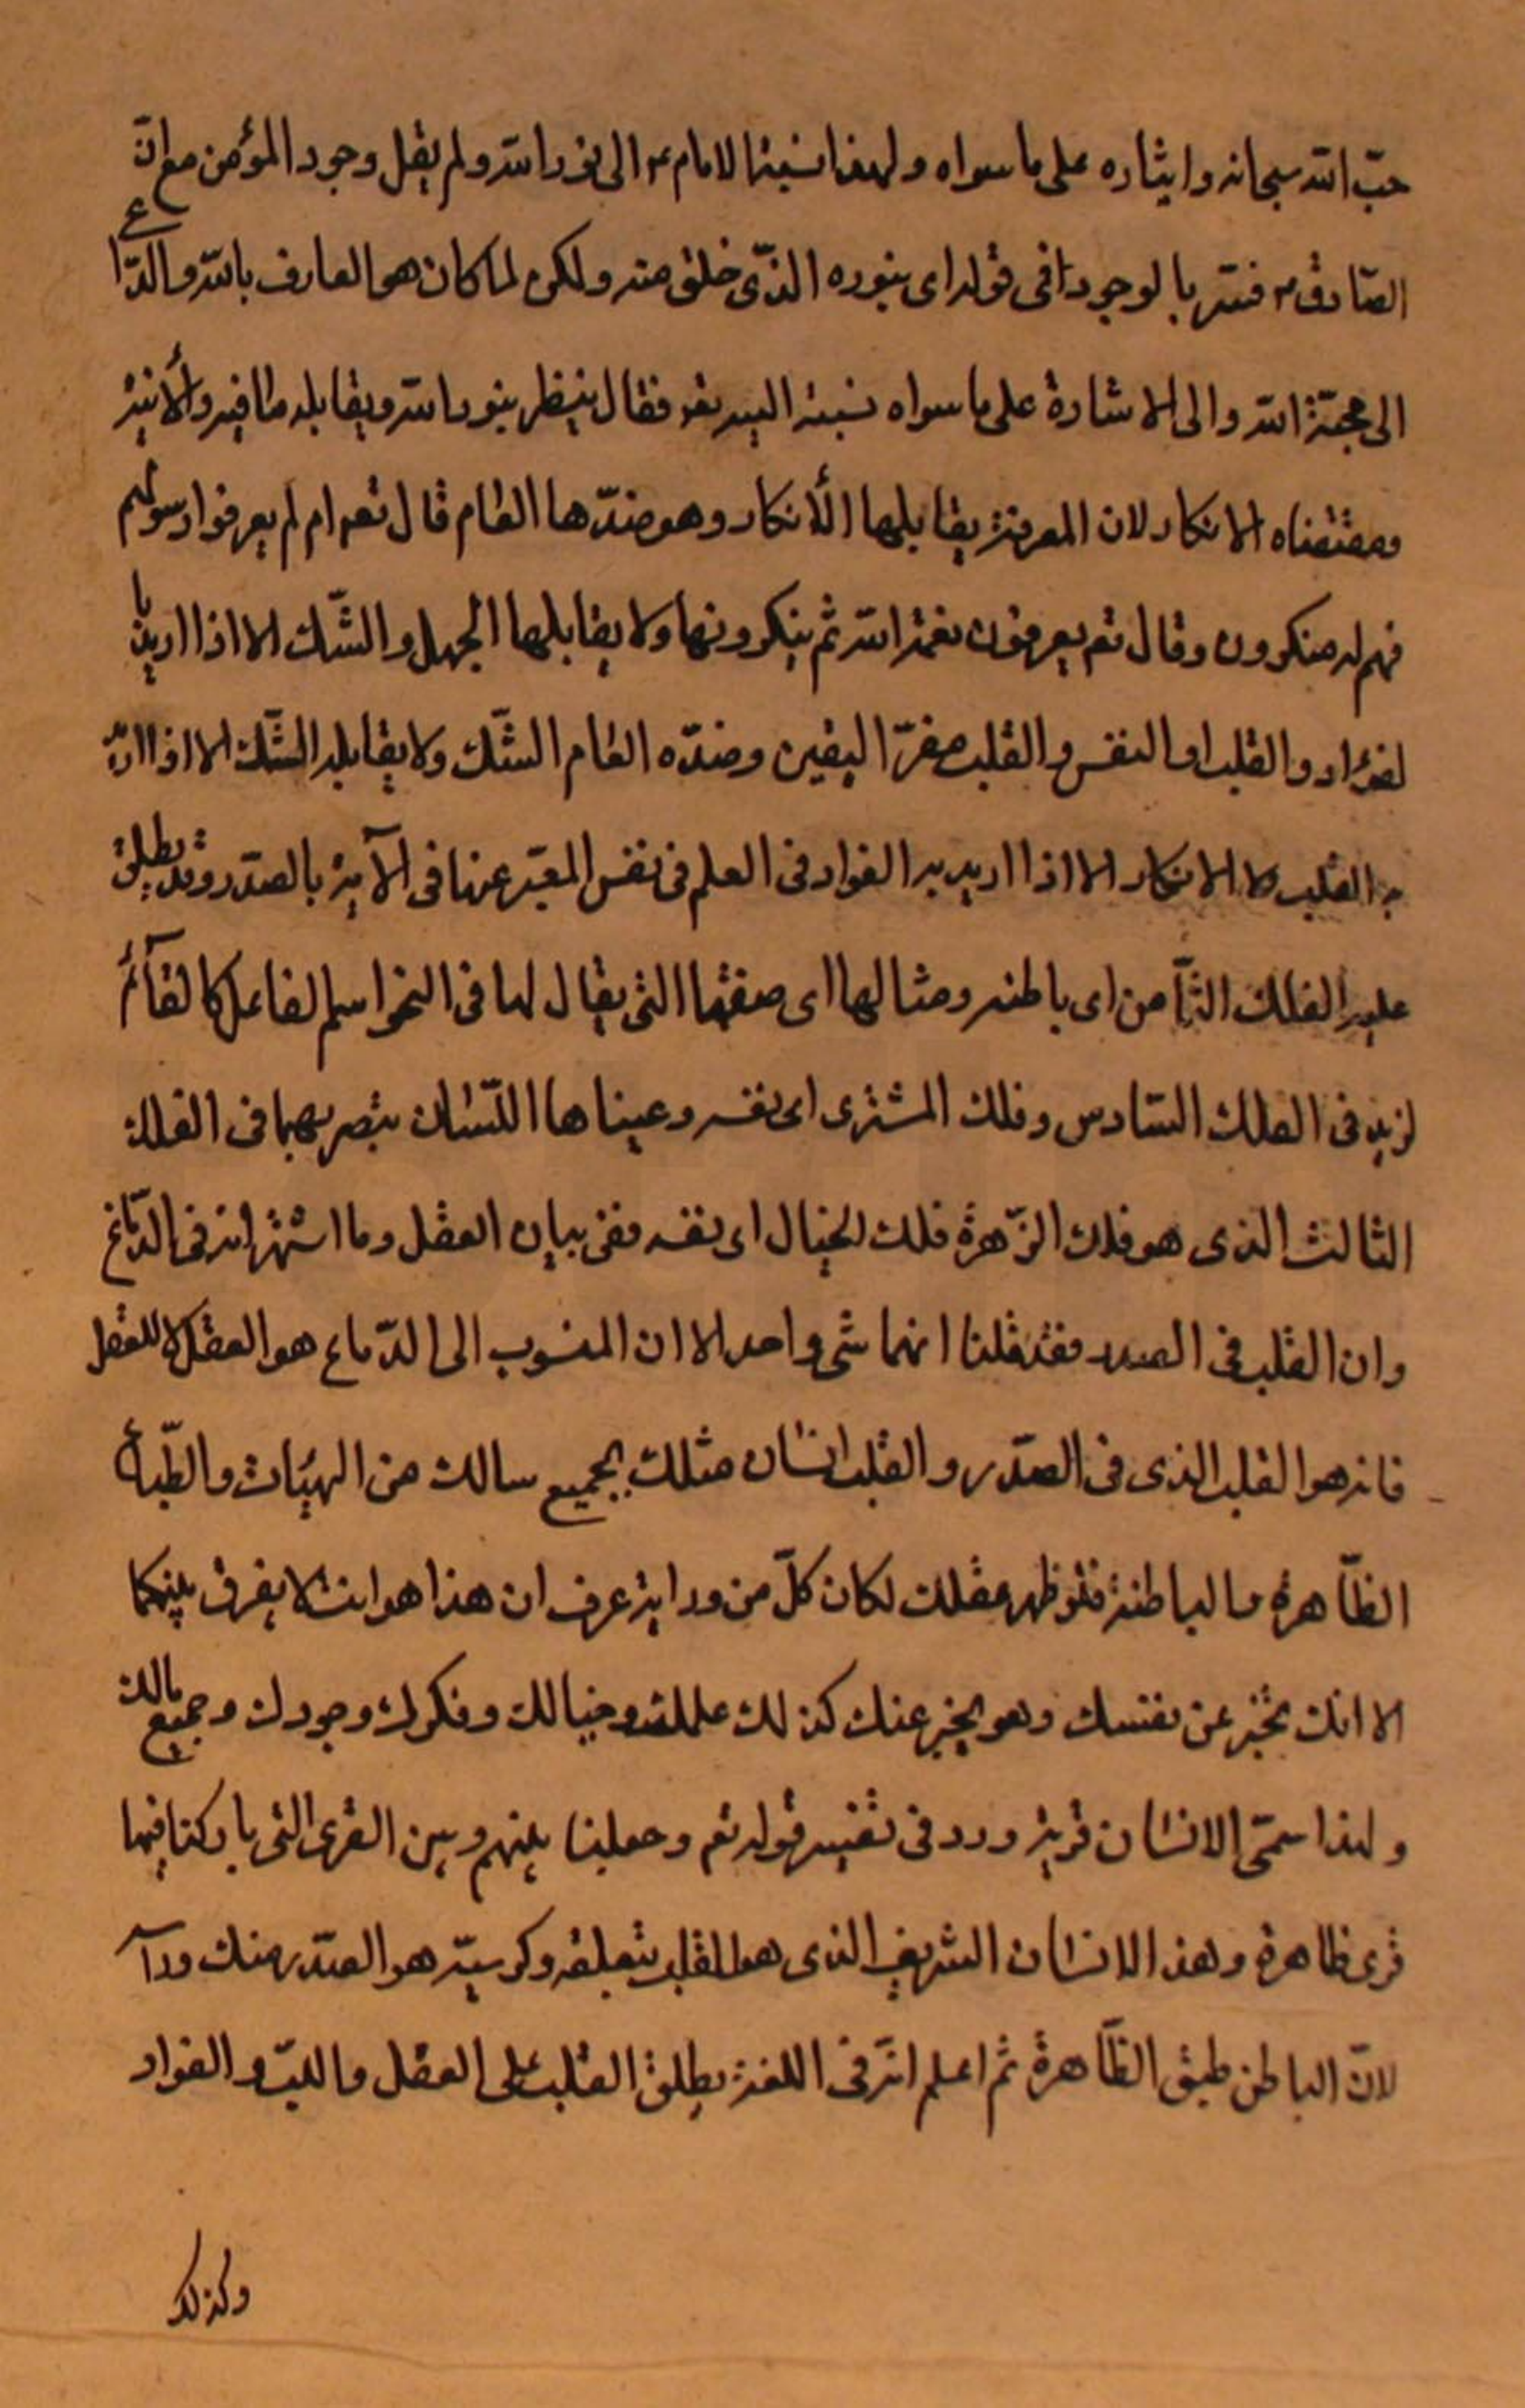 حبّ الله سبحانه وايثاره على ما سواه ولهذا نسبه الامام ع الى نور الله ولم يقل وجود المؤمن مع انّ
الصّادق ع فسّر بالوجود في قوله اى بنوره الذّى خلق منه ولكن لما كان هو العارف بالله والدّاع
الى محبّة الله والى الاشارة على ما سواه نسبه اليه تعه فقال ينظر بنور الله ويقابله ما فيه والأنيّة
ومقتضاه الانكار لان المعرفة يقابلها الأنكار وهو ضدّها العام قال تعه ام لم يعرفوا رسولهم
فهم له منكرون وقال تعه يعرفون نعمة الله ثم ينكرونها ولا يقابلها الجهل والشّك الا اذا اريد با
لفؤاد والقلب او النفس والقلب مقرّ اليقين وضدّه العام الشّك ولا يقابله الشّك الا اذا اريد
به القلب ولا الانكار الا اذا اريد به الفواد في العلم في نفس المعبّر عنها في الآية بالصّدر وقد يطلق
عليه الفلك الثّامن اى باطنه ومثالها اى صفتها التى يقال لها في النحو اسم الفاعل كالقآئم
لزيد في الفلك السّادس وفلك المشترى اى نفسه وعيناها اللّتان تبصر بهما في الفلك
الثالث الذى هو فلك الزّهرة فلك الخيال اى نفسه ففى بيان العقل وما اشتهر انه في الدّماغ
وان القلب في الصدر فقد قلنا انهما شى واحد الا ان المنسوب الى الدّماغ هو العقل لا للعقل
فانه هو القلب الذى في الصّدر والقلب انسان مثلك بجميع سالك من الهيئات والطّبايع
الظّاهرة والباطنة فلو ظهر عقلك لكان كلّ من ورايه عرف ان هذا هو انت لا يفرق بينكما
الا انك تخبر عن نفسك وهو يخبر عنك كذلك علمك وخيالك وفكرك وجودك وجميع مالك
ولهذا سمّى الانسان قرية ورد في تفسير قوله تعه وجعلنا بينهم وبين القرى التى باركنا فيها
قرى ظاهرة وهذا الانسان الشريف الذى هو القلب بتعلقه وكرسيّه هو الصّدر منك ورآء
لانّ الباطن طبق الظّاهرة ثم اعلم انّه في اللغة يطلق القلب على العقل واللبّ والفواد
وكذلك